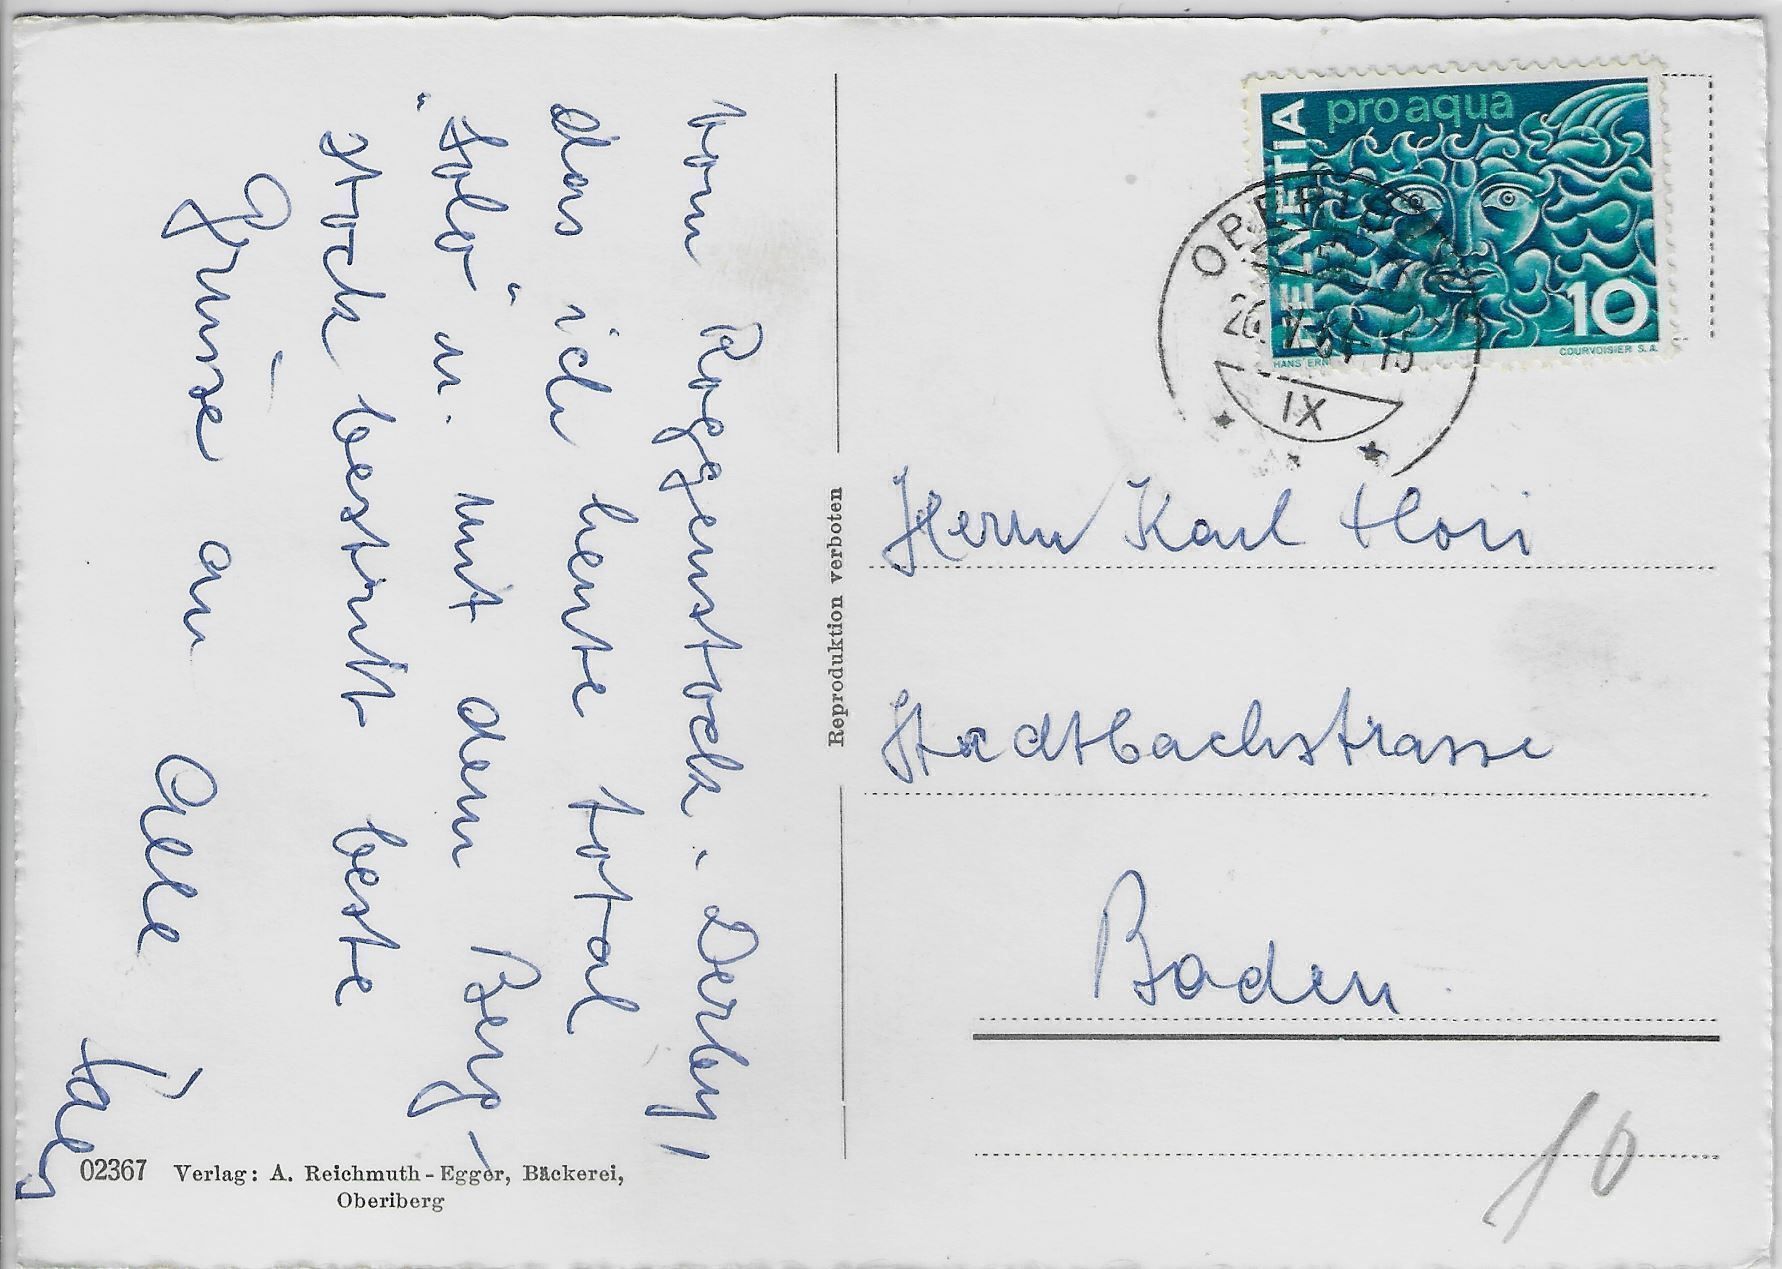 vom Roggenstock-Derby,
das ich heute total
"Solo" u. mit dem Berg-
stock bestritt beste
Grüsse an Alle
02367 Verlag: A. Reichmuth-Egger, Bäckerei,
Oberiberg
Reproduktion verboten
HELVETIA
pro aqua
10
COURVOISIER S.A.
OBERIBERG
IX
Herrn Karl Hori
Stadtbachstrasse
Baden
10